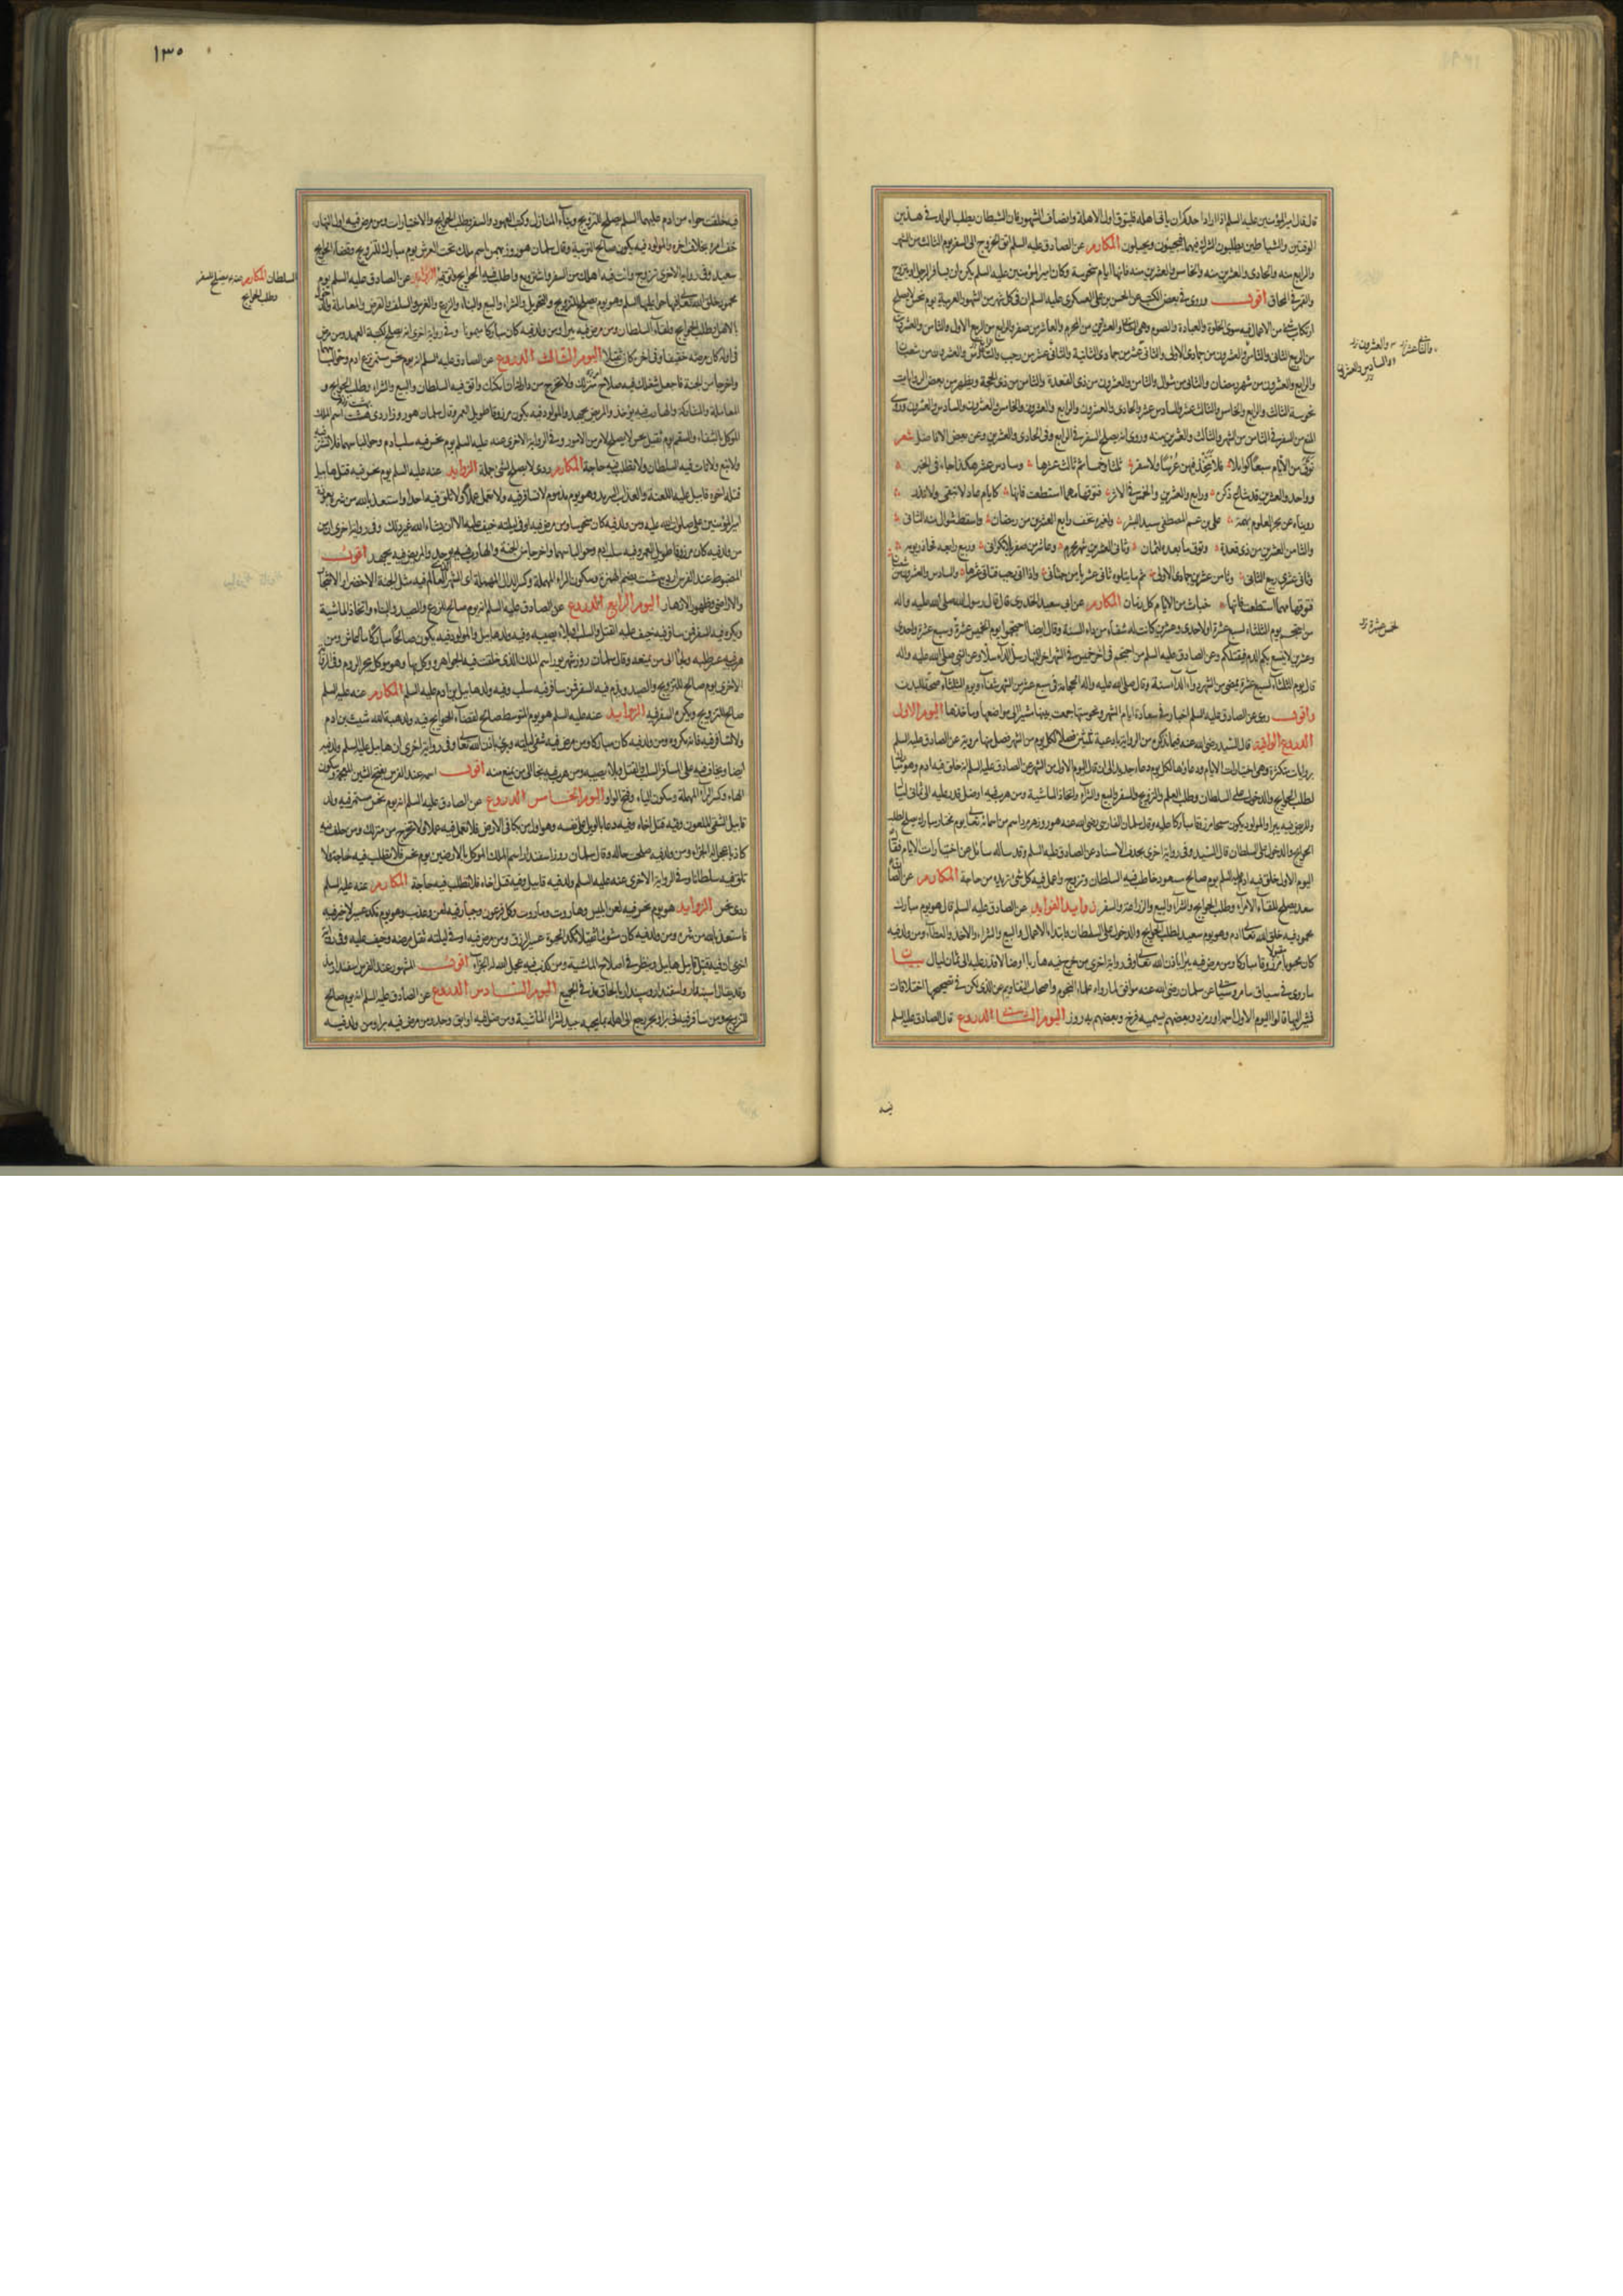 قال قال امير المؤمنين عليه السلم اذا اراد احدكم ان ياتي اهله فليتوق اول الاهلة وانصاف الشهور فان الشيطان يطلب الولد في هذين
الوقتين والشياطين يطلبون الشرك فيهما فيجيئون ويحبلون المكارم عن الصادق عليه السلم اتق الخروج الى السفر يوم الثالث من الشهر
والرابع منه والحادى والعشرين منه والخامس والعشرين منه فانها ايام منحوسة وكان امير المؤمنين عليه السلم يكره ان يسافر الرجل او يتزوج
والقمر في المحاق اقول وروى في بعض الكتب عن الحسن بن على العسكرى عليه السلم ان في كل شهر من الشهور العربية يوم نحس لا يصلح
من الاعمال فيه سوى الخلوة والعبادة والصوم وهى والعشرين من المحرم والعاشر من صفر والرابع من الربيع الاول والثامن والعشرين
من الربيع الثانى والثامن والعشرون من جمادى الاولى والثانى عشر من جمادى الثانية والثانى عشر من رجب والعشرون من شعبان
والرابع والعشرون من شهر رمضان والثانى من شوال والثامن والعشرون من ذى القعدة والثامن من ذى الحجة ويظهر من بعض الروايات
نحوسة الثالث والرابع والخامس والثالث عشر والسادس عشر والحادى والعشرون والرابع والعشرون والخامس والعشرون والسادس والعشرون وروى
المنع من السفر في الثامن من الشهر والثالث والعشرين منه وروى انه يصلح السفر في الرابع وفى الحادى والعشرين وعن بعض الافاضل شعر
توق من الايام سبعا كواملا فلا تتخذ فيهن عرسا ولا سفر ثلثا وخمسا ثم ثالث عشرها وسادس عشر هكذا جاء في الخبر
وواحد والعشرين قد شاع ذكره ورابع والعشرين والخمس في الاثر فتوقها مهما استطعت فانها كايام عاد لا تبقى ولا تذر
رويناه عن بحر العلوم على بن عم المصطفى سيد البشر رابع العشرين من رمضان واسقط شوال منه الثانى
والثامن العشرين من ذى قعدة وتوق ما بعده لثمان وثانى العشرين شهر محرم وعاشر من صفر
وثامن عشرين جمادى الاولى
فتوقها مهما استطعت فانها خباث من الايام كل زمان المكارم عن ابى سعيد الخدرى قال قال رسول الله صلى الله عليه واله
من احتجم يوم الثلثاء لسبع عشرة او لاحدى وعشرين كانت له شفاء من داء السنة وقال ايضا احتجموا يوم الخميس عشرة وسبع عشرة واحدى
وعشرين لا يتبيغ بكم الدم فيقتلكم وعن الصادق عليه السلم من احتجم فى اخر خميس في الشهر اخر النهار سل الداء سلا وعن النبي صلى الله عليه واله
قال يوم الثلثاء لسبع عشرة يمضى من الشهر دواء لداء سنة وقال صلى الله عليه واله الحجامة في سبع عشر من الشهر شفاء ويوم الثلثاء صحة للبدن
واقول روى عن الصادق عليه السلم اخبار في سعادة ايام الشهر ونحوستها جمعت بينها مشيرا الى مواضعها وماخذها اليوم الاول
الدروع الواقية قال السيد رضى الله عنه فيما نذكره من الرواية بادعية ثلثين فصلا لكل يوم من الشهر فصل منها مروية عن الصادق عليه السلم
بروايات متكثرة وهى اختيارات الايام ودعاؤها لكل يوم دعاء جديد الى ان قال اليوم الاول من الشهر عن الصادق عليه السلم انه خلق فيه ادم وهو
لطلب الحوايج والدخول على السلطان وطلب العلم والتزويج والسفر والبيع والشراء واتخاذ الماشية ومن هرب فيه او ضل قدر عليه الى ثمانى ليال
والمريض فيه يبرا والمولود يكون سمحا مرزوقا مباركا عليه وقال سلمان الفارسى رضى الله عنه هو روز هرمزد اسم من اسمائه تعالى يوم مختار مبارك يصلح لطلب
الحوايج والدخول على السلطان قال السيد وفى رواية اخرى بحذف الاسناد عن الصادق عليه السلم وقد ساله سائل عن اختيارات الايام فقال
اليوم الاول خلق فيه ادم عليه السلم يوم صالح مسعود خاطب فيه السلطان وتزوج واعمل فيه كل شئ تريده من حاجة المكارم عن الصادق
سعد يصلح للقاء الامراء وطلب الحوايج والشراء والبيع والزراعة والسفر زوايد الفوايد عن الصادق عليه السلم قال هو يوم مبارك
محمود فيه خلق الله تعالى ادم وهو يوم سعيد لطلب الحوايج والدخول على السلطان وابتداء الاعمال والبيع والشراء والاخذ والعطاء ومن ولد فيه
كان محبوبا مقبولا مرزوقا مباركا ومن مرض فيه يبرا باذن الله تعالى وفى رواية اخرى من خرج فيه هاربا او ضالا قدر عليه الى ثمان ليال بيان
ما روى في سياق عن سلمان رضى الله عنه موافق لما رواه علماء النجوم واصحاب التقاويم عن الفرس لكن في تصحيحها اختلافات
نشير اليها قالوا اليوم الاول اسمه اورمزد وبعضهم يسميه فرخ وبعضهم به روز اليوم الثانى الدروع قال الصادق عليه السلم
فيه
والثانى عشر
والعشرون
والسادس والعشرين
لخمس عشرة
١٣٠
فيه خلقت حواء من ادم عليهما السلم يصلح للتزويج وبناء المنازل وكتب العهود والسفر وطلب الحوايج والاختيارات ومن مرض فيه اول النهار
خف امره بخلاف اخره والمولود فيه يكون صالح التربية وقال سلمان هو روز بهمن اسم ملك تحت العرش يوم مبارك للتزويج وقضاء الحوايج
سعيد وفى رواية الاخرى تزوج وائت فيه اهلك من السفر واشتر وبع واطلب فيه الحوايج الزوايد عن الصادق عليه السلم يوم
محمود خلق الله تعالى فيها حوا عليها السلم وهو يوم يصلح للتزويج والتحويل والشراء والبيع والبناء والزرع والغرس والسلف والقرض والمعاملة
بالاهل وطلب الحوايج ولقاء السلطان ومن مرض فيه يبرا ومن ولد فيه كان مباركا ميمونا وفى رواية اخرى انه يصلح لكتبة العهد ومن مرض
في اوله كان مرضه خفيفا وفى اخره كان ثقيلا اليوم الثالث الدروع عن الصادق عليه السلم انه يوم نحس مستمر نزع ادم وحوا لباسهما
واخرجا من الجنة فاجعل شغلك فيه صلاح امر منزلك ولا تخرج من دارك ان امكنك واتق فيه السلطان والبيع والشراء وطلب الحوايج و
المعاملة والمشاركة والهارب فيه يؤخذ والمريض يجهد والمولود فيه يكون مرزوقا طويل العمر وقال سلمان هو روز اردى بهشت اسم الملك
الموكل بالشفاء والسقم يوم ثقيل نحس لا يصلح لامر من الامور وفى الرواية الاخرى عنه عليه السلم يوم نحس فيه سلب ادم وحوا لباسهما فلا تشتر فيه
ولا تبع ولا تات فيه السلطان ولا تطلب فيه حاجة المكارم ردى لا يصلح لشئ جملة الزوايد عنه عليه السلم يوم نحس فيه قتل هابيل
قتله اخوه قابيل عليه اللعنة والعذاب السرمد وهو يوم مذموم لا تسافر فيه ولا تعمل عملا ولا تلق فيه احدا واستعذ بالله من شره بعوذة
امير المؤمنين على صلوات الله عليه ومن ولد فيه كان منحوسا ومن مرض فيه او في ليلته خيف عليه الا ان يشاء الله غير ذلك وفى رواية اخرى ان
من ولد فيه كان مرزوقا طويل العمر وفيه سلب ادم وحوا لباسهما واخرجا من الجنة والهارب فيه يوخذ والمريض فيه يجهد اقول
المضبوط عند الفرس اردى بهشت بضم الهمزة وسكون الراء المهملة وكسر الدال المهملة اى الشهر الذى العالم فيه مثل الجنة لاخضرار الاشجار
والاراضى وظهور الازهار اليوم الرابع الدروع عن الصادق عليه السلم انه يوم صالح للزرع والصيد والبناء واتخاذ الماشية
ويكره فيه السفر فمن سافر فيه خيف عليه القتل والسلب او بلاء يصيبه وفيه ولد هابيل والمولود فيه يكون صالحا مباركا ما عاش ومن
هرب فيه عسر طلبه ولجا الى من يمنعه وقال سلمان روز شهريور اسم الملك الذى خلقت فيه الجواهر ووكل بها وهو موكل ببحر الروم وفى الرواية
الاخرى يوم صالح للتزويج والصيد ويذم فيه السفر فمن سافر فيه سلب وفيه ولد هابيل بن ادم عليه السلم المكارم عنه عليه السلم
صالح للتزويج ويكره السفر فيه الزوايد عنه عليه السلم هو يوم المتوسط صالح لقضاء الحوايج فيه ولد هبة الله شيث بن ادم
ولا تسافر فيه فانه مكروه ومن ولد فيه كان مباركا ومن مرض فيه شفى ليلته وبرئ باذن الله تعالى وفى رواية اخرى ان هابيل عليه السلم ولد فيه
ايضا ويخاف فيه على المسافر السلب والقتل وبلاء يصيبه ومن هرب فيه لجا الى من يمنع منه اقول اسمه عند الفرس بفتح الشين المعجمة وسكون
الهاء وكسر الراء المهملة وسكون الياء وفتح الواو اليوم الخامس الدروع عن الصادق عليه السلم انه يوم نحس مستمر فيه ولد
قابيل الشقى الملعون وفيه قتل اخاه وفيه دعا بالويل على نفسه وهو اول من بكى في الارض فلا تعمل فيه عملا ولا تخرج من منزلك ومن حلف فيه
كاذبا عجل له الجزاء ومن ولد فيه صلحت حاله وقال سلمان روز اسفندار اسم الملك الموكل بالارضين يوم نحس فلا تطلب فيه حاجة ولا
تلق فيه سلطانا وفى الرواية الاخرى عنه عليه السلم ولد فيه قابيل وفيه قتل اخاه فلا تطلب فيه حاجة المكارم عنه عليه السلم
ردى نحس الزوايد هو يوم نحس فيه لعن ابليس وهاروت وماروت وكل فرعون وجبار فيه لعن وعذب وهو يوم نكد عسير لا خير فيه
فاستعذ بالله من شره ومن ولد فيه كان مشوما ثقيلا نكد الحيوة عسير الرزق ومن مرض فيه او في ليلته ثقل مرضه وخيف عليه وفى رواية
اخرى ان فيه قتل قابيل هابيل وينظر في اصلاح الماشية ومن كذب فيه عجل الله له الجزاء اقول المشهور عند الفرس اسفندارمذ
وقد يقال اليوم السادس الدروع عن الصادق عليه السلم انه يوم صالح
للتزويج ومن سافر فيه في بر او بحر يرجع الى اهله بما يحبه جيد لشراء الماشية ومن ضل فيه او ابق وجد ومن مرض فيه برا ومن ولد فيه
السلطان المكارم عنه يصلح للسفر
وطلب الحوايج